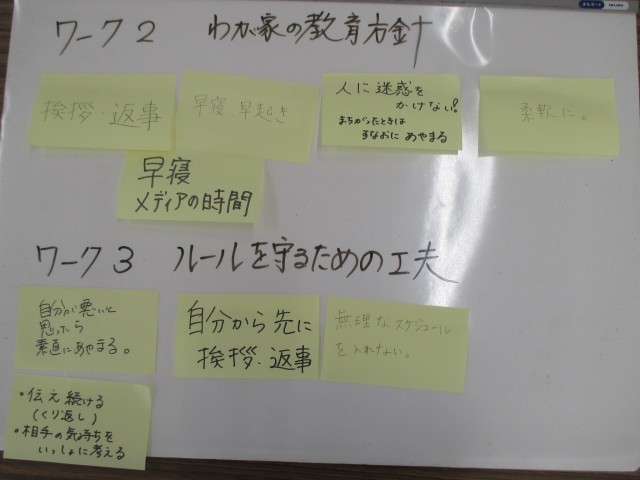 ワーク2 わが家の教育方針
挨拶・返事
早寝、早起き
人に迷惑を
かけない!
まちがったときは
すなおにあやまる
柔軟に。
早寝
メディアの時間
ワーク3 ルールを守るための工夫
自分が悪いと
思ったら
素直にあやまる。
自分から先に
挨拶・返事
無理なスケジュール
を入れない。
・伝え続ける
(くり返し)
・相手の気持ちを
いっしょに考える